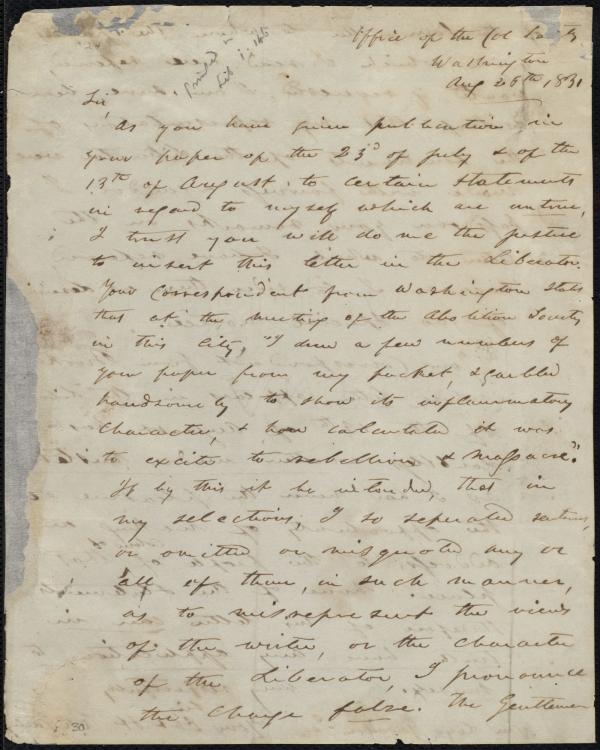 Office of the Col Socty
Washington
Aug 26th 1831
printed in
Lib
Sir,
As you have given publication in
your paper of the 23d of July & of the
13th of August, to certain statements
in regard to myself which are untrue,
I trust you will do me the justice
to insert this letter in the Liberator.
Your Correspondent from Washington states
that at the meeting of the Abolition Society
in this City, "I drew a few numbers of
your paper from my pocket, & garbled
handsomely to show its inflammatory
character, & how calculated it was
to excite to rebellion & massacre."
If by this it be intended, that in
my selections, I so seperated
or omitted or misquoted any or
all of them, in such manner,
as to misrepresent the views
of the writer, or the character
of the Liberator, I pronounce
the charge false. The Gentlemen
30